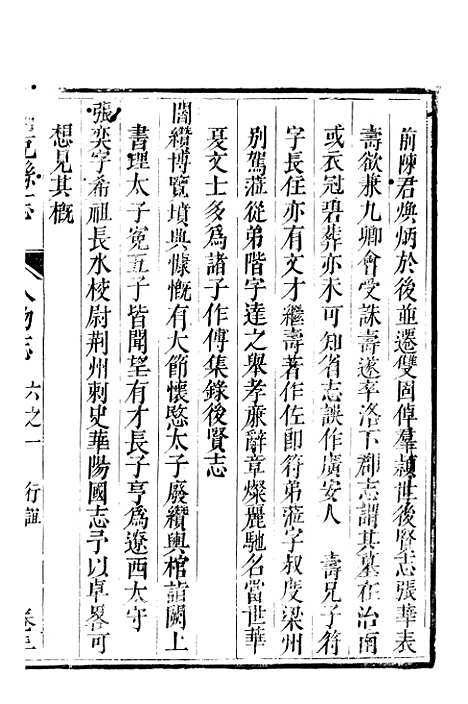 前陳君煥炳於後並遷雙固倬羣穎世後賢志張華表
壽欲兼九卿會受誅壽遂卒洛下郡志謂其墓在治南
或衣冠碧葬亦未可知省志誤作廣安人 壽兄子符
字長住亦有文才繼壽著作佐郎符弟蒞字叔度梁州
別駕蒞從弟階字達之舉孝廉辭章燦麗馳名當世華
夏文士多為諸子作傳集錄後賢志
閻纘博覽墳典慷慨有大節懷愍太子廢纘輿棺詣闕上
書理太子冤五子皆開望有才長子亨為遼西太守
張奕字希祖長水校尉荊州刺史華陽國志予以卓畧可
想見其概
縣志
人物志 六之一 行誼 卷三